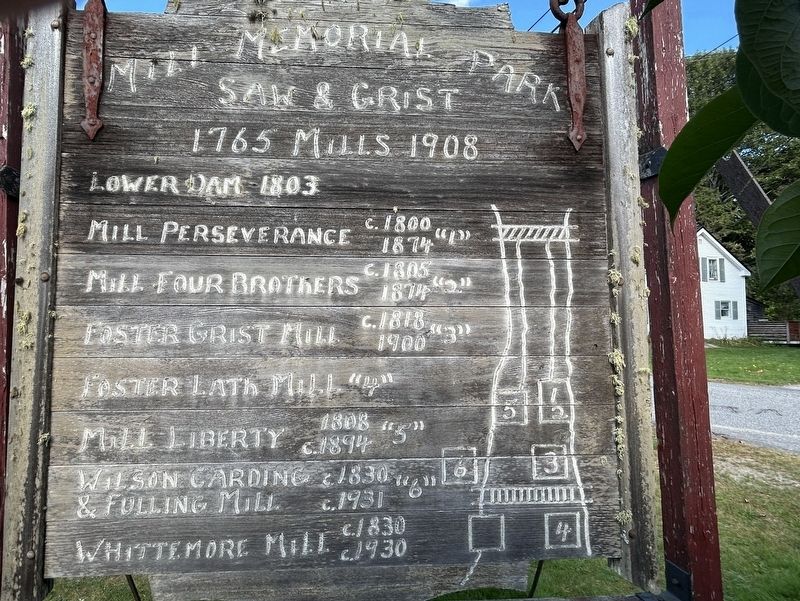 MILL MEMORIAL PARK
SAW & GRIST
1765 MILLS 1908
LOWER DAM 1803
MILL PERSEVERANCE c.1800 1874 "1"
MILL FOUR BROTHERS c.1805 1874 "2"
FOSTER GRIST MILL c.1818 1900 "3"
FOSTER LATH MILL "4"
MILL LIBERTY 1808 c.1894 "5"
WILSON CARDING c.1830 "6"
& FULLING MILL c.1931
WHITTEMORE MILL c.1830 c.1930
5 1
2
6 3
4